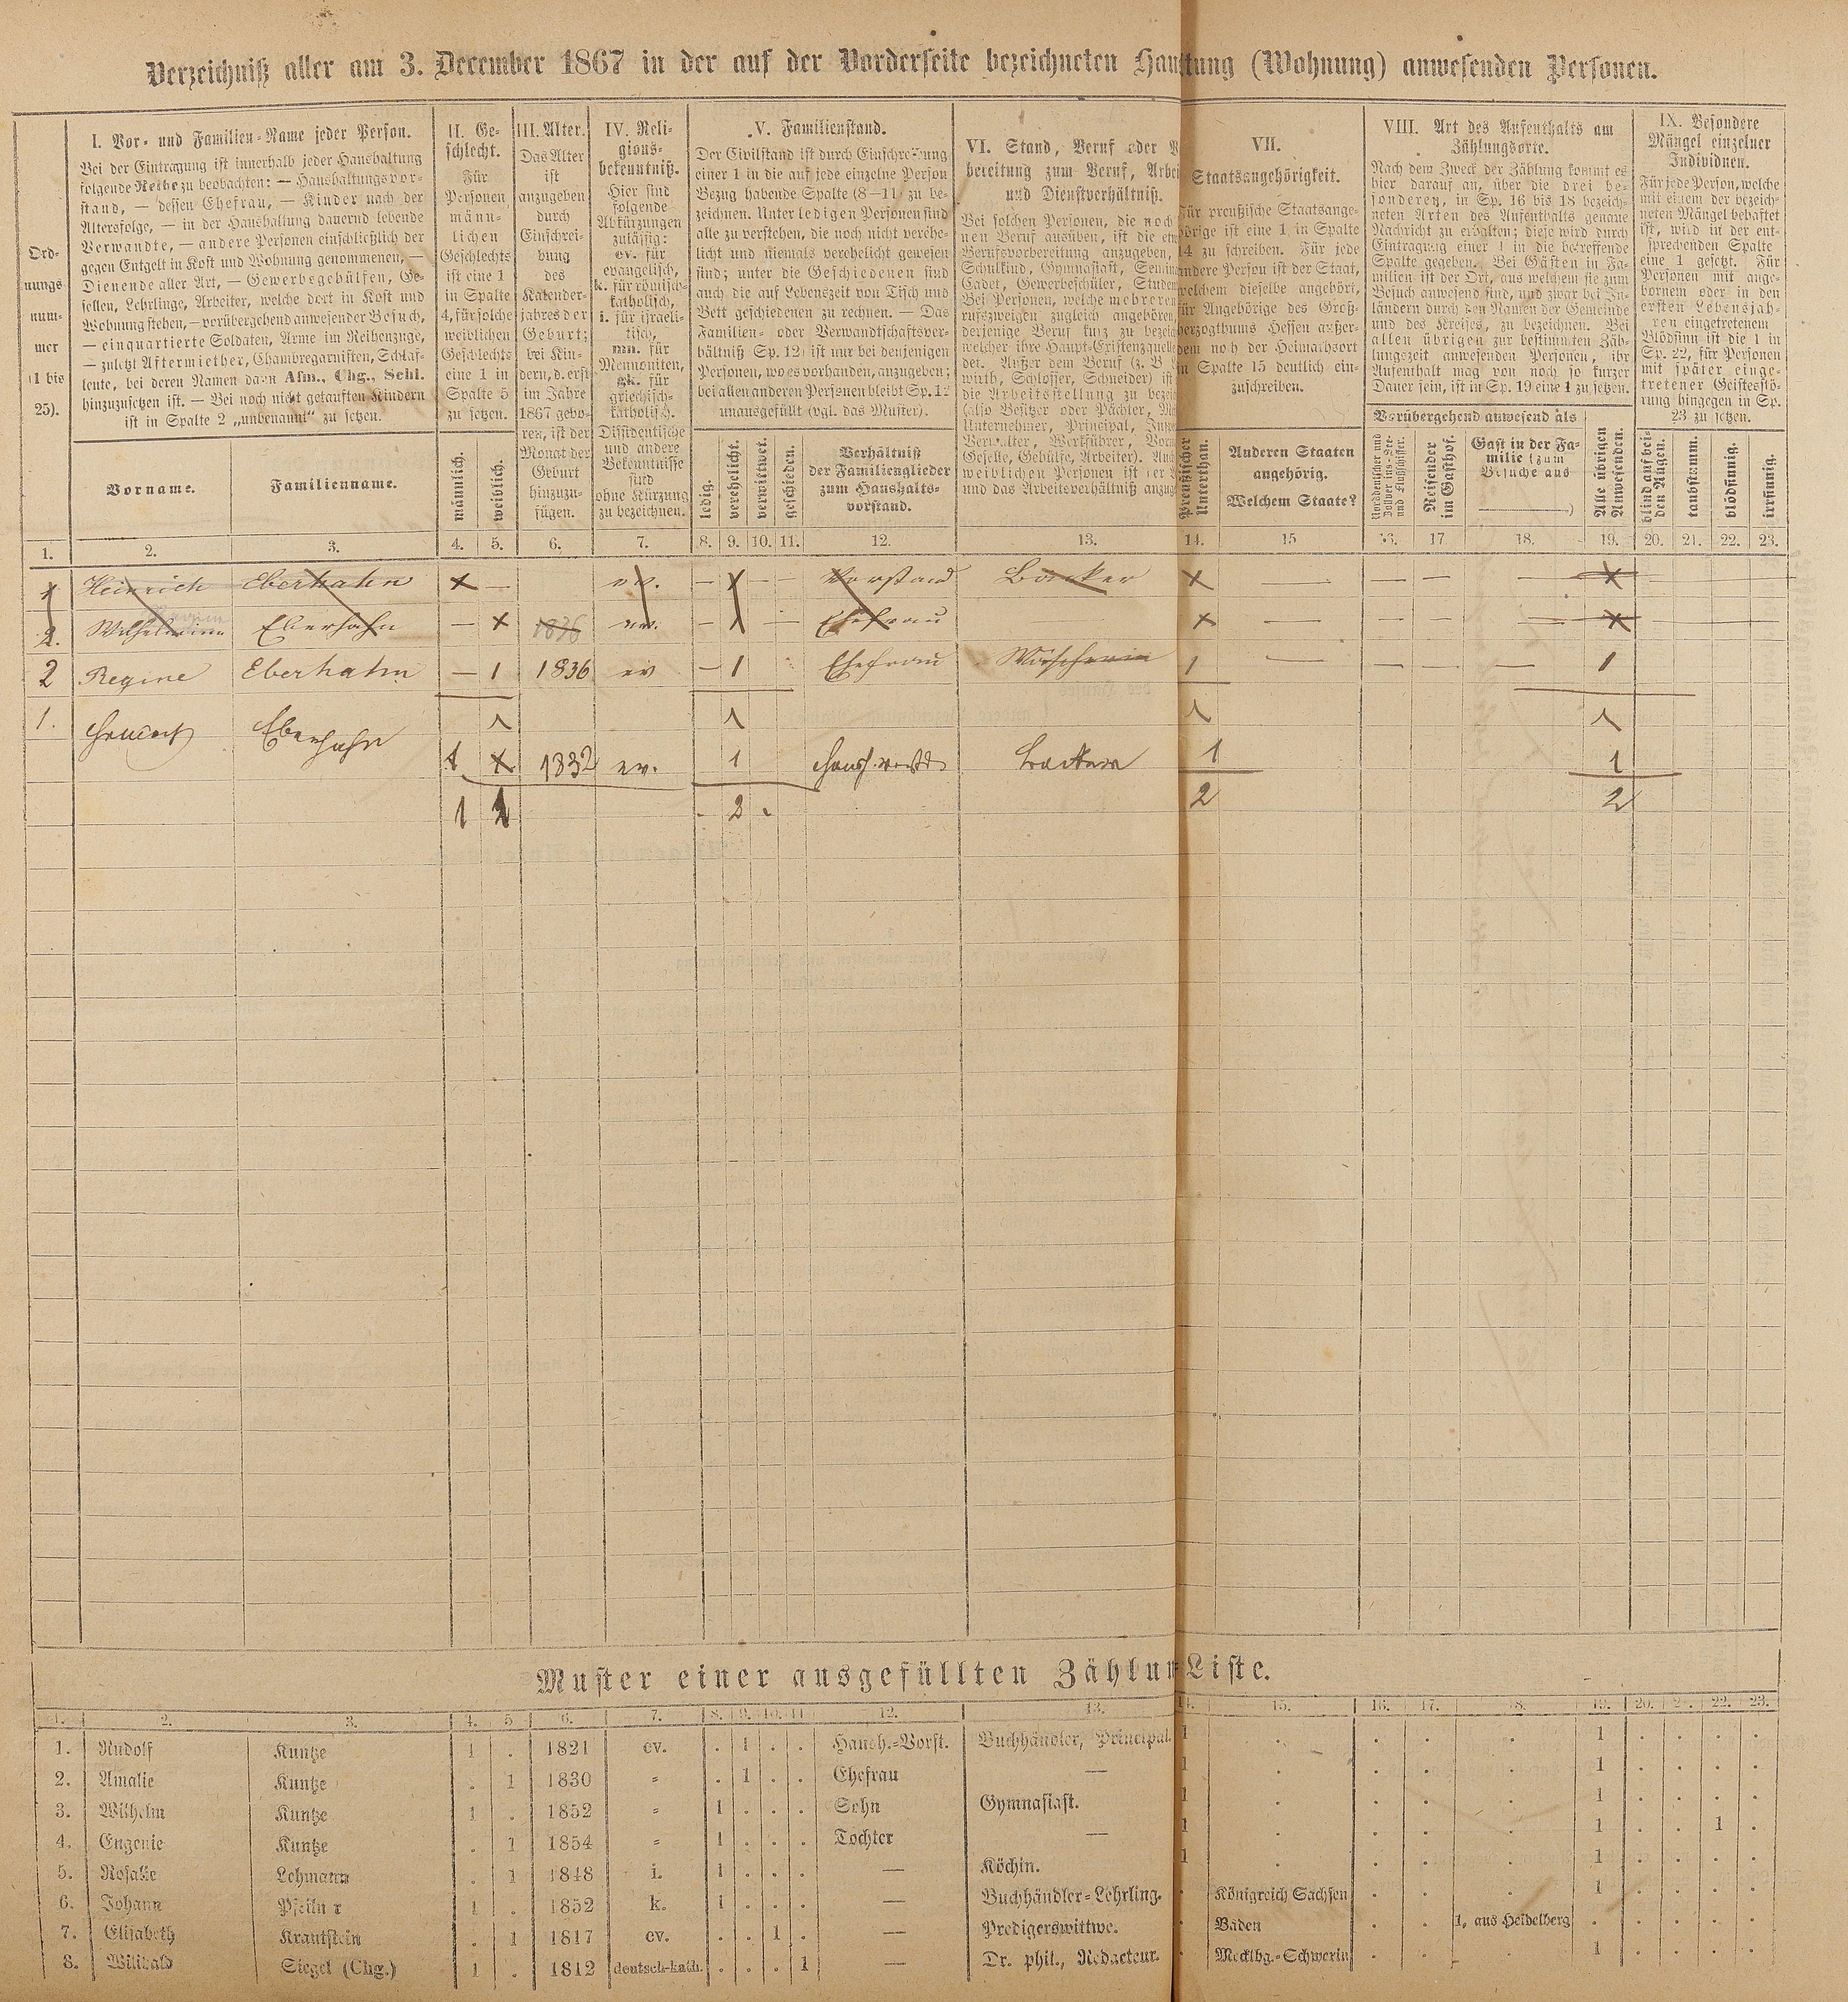 Verzeichniß aller am 3. December 1867 in der auf der Vorderseite bezeichneten Haushaltung (Wohnung) anwesenden Personen.
Ord-
nungs-
num-
mer
(1 bis
25).
I. Vor- und Familien-Name jeder Person.
Bei der Eintragung ist innerhalb jeder Haushaltung
folgende Reihe zu beobachten: — Haushaltungsvor-
stand, — dessen Ehefrau, — Kinder nach der
Altersfolge, — in der Haushaltung dauernd lebende
Verwandte, — andere Personen einschließlich der
gegen Entgelt in Kost und Wohnung genommenen, —
Dienende aller Art, — Gewerbsgehülfen, Ge-
sellen, Lehrlinge, Arbeiter, welche dort in Kost und
Wohnung stehen, — vorübergehend anwesender Besuch,
— einquartierte Soldaten, Arme im Reihenzuge,
— zuletzt Aftermiether, Chambregarnisten, Schlaf-
leute, bei deren Namen dann Afm., Chg., Schl.
hinzuzusetzen ist. — Bei noch nicht getauften Kindern
ist in Spalte 2 „unbenannt“ zu setzen.
Vorname.
Familienname.
II. Ge-
schlecht.
Für
Personen
männ-
lichen
Geschlechts
ist eine 1
in Spalte
4, für solche
weiblichen
Geschlechts
eine 1 in
Spalte 5
zu setzen.
männlich.
weiblich.
III. Alter.
Das Alter
ist
anzugeben
durch
Einschrei-
bung
des
Kalender-
jahres der
Geburt;
bei Kin-
dern, d. erst
im Jahre
1867 gebo-
ren, ist der
Monat der
Geburt
hinzuzu-
fügen.
IV. Reli-
gions-
bekenntniß.
Hier sind
folgende
Abkürzungen
zulässig:
ev. für
evangelisch,
k. für römisch-
katholisch,
i. für israeli-
tisch,
mn. für
Mennoniten,
gk. für
griechisch-
katholisch.
Dissidentische
und andere
Bekenntnisse
sind
ohne Kürzung
zu bezeichnen.
V. Familienstand.
Der Civilstand ist durch Einschreibung
einer 1 in die auf jede einzelne Person
Bezug habende Spalte (8—11) zu be-
zeichnen. Unter ledigen Personen sind
alle zu verstehen, die noch nicht verehe-
licht und niemals verehelicht gewesen
sind; unter die Geschiedenen sind
auch die auf Lebenszeit von Tisch und
Bett geschiedenen zu rechnen. — Das
Familien- oder Verwandtschaftsver-
hältniß Sp. 12) ist nur bei denjenigen
Personen, wo es vorhanden, anzugeben;
bei allen anderen Personen bleibt Sp. 12
unausgefüllt (vgl. das Muster).
ledig.
verehelicht.
verwittwet.
geschieden.
Verhältniß
der Familienglieder
zum Haushalts-
vorstand.
VI. Stand, Beruf oder
bereitung zum Beruf,
und Dienstverhältniß.
Bei solchen Personen, die noch
nen Beruf ausüben, ist die
Berufsvorbereitung anzugeben,
Schulkind, Gymnasiast,
Cadet, Gewerbeschüler,
Bei Personen, welche mehreren
rufszweigen zugleich angehören,
derjenige Beruf kurz zu
welcher ihre Haupt-Existenzquelle
det. Außer dem Beruf (z. B.
wirth, Schlosser, Schneider) ist
die Arbeitsstellung zu
(also Besitzer oder Pächter,
Unternehmer, Principal,
Verwalter, Werkführer,
Geselle, Gehülfe, Arbeiter).
weiblichen Personen ist der
und das Arbeitsverhältniß
VII.
Staatsangehörigkeit.
Für preußische Staatsange-
hörige ist eine 1 in Spalte
14 zu schreiben. Für jede
andere Person ist der Staat,
welchem dieselbe angehört,
für Angehörige des Groß-
herzogthums Hessen außer-
dem noch der Heimathsort
in Spalte 15 deutlich ein-
zuschreiben.
Preußischer
Unterthan.
Anderen Staaten
angehörig.
Welchem Staate?
VIII. Art des Aufenthalts am
Zählungsorte.
Nach dem Zweck der Zählung kommt es
hier darauf an, über die drei be-
sonderen, in Sp. 16 bis 18 bezeich-
neten Arten des Aufenthalts genaue
Nachricht zu erhalten; diese wird durch
Eintragung einer 1 in die betreffende
Spalte gegeben. Bei Gästen in Fa-
milien ist der Ort, aus welchem sie zum
Besuch anwesend sind, und zwar bei In-
ländern durch den Namen der Gemeinde
und des Kreises, zu bezeichnen. Bei
allen übrigen zur bestimmten Zäh-
lungszeit anwesenden Personen, ihr
Aufenthalt mag von noch so kurzer
Dauer sein, ist in Sp. 19 eine 1 zu setzen.
Vorübergehend anwesend als
Reisender
im Gasthof.
Gast in der Fa-
milie (zum
Besuche aus
)
Alle übrigen
Anwesenden.
IX. Besondere
Mängel einzelner
Individuen.
Für jede Person, welche
mit einem der bezeich-
neten Mängel behaftet
ist, wird in der ent-
sprechenden Spalte
eine 1 gesetzt. Für
Personen mit ange-
bornem oder in den
ersten Lebensjah-
ren eingetretenem
Blödsinn ist die 1 in
Sp. 22, für Personen
mit später einge-
tretener Geistesstö-
rung hingegen in Sp.
23 zu setzen.
blind auf bei-
den Augen.
taubstumm.
blödsinnig.
irrsinnig.
1. 2. 3. 4. 5. 6. 7. 8. 9. 10. 11. 12. 13. 14. 15 16. 17 18. 19. 20. 21. 22. 23.
Heinrich Eberhahn — ev. — — — Vorstand Bäcker — — — —
2. Wilhelmine Eberhahn — 1836 ev. — — Ehefrau — — —
2 Regine Eberhahn — 1 1836 ev — 1 Ehefrau Wäscherin 1 — — — — 1
1. Heinrich Eberhahn 1 1832 ev. 1 Haush. vorstd Bäcker 1 1
1 1 2 2 2
Muster einer ausgefüllten Zählungs-Liste.
1. 2. 3. 4. 5. 6. 7. 8. 9. 10. 11. 12. 13. 14. 15. 16. 17. 18. 19. 20. 21. 22. 23.
1. Rudolf Kuntze 1 . 1821 ev. . 1 . . Haush.-Vorst. Buchhändler, Principal. 1 . . . . 1 . . . .
2. Amalie Kuntze . 1 1830 = . 1 . . Ehefrau — 1 . . . . 1 . . . .
3. Wilhelm Kuntze 1 . 1852 = 1 . . . Sohn Gymnasiast. 1 . . . . 1 . . . .
4. Eugenie Kuntze . 1 1854 = 1 . . . Tochter — 1 . . . . 1 . . 1 .
5. Rosalie Lehmann . 1 1848 i. 1 . . . — Köchin. 1 . . . . 1 . . . .
6. Johann 1 . 1852 k. 1 . . . — Buchhändler-Lehrling. . Königreich Sachsen . . . 1 . . . .
7. Elisabeth Krautstein . 1 1817 ev. . . 1 . — Predigerswittwe. . Baden . . 1, aus Heidelberg . . . . .
8. Willibald Siegel (Chg.) 1 . 1812 deutsch-kath. . . . 1 — Dr. phil., Redacteur. . Mecklbg.-Schwerin . . . 1 . . . .